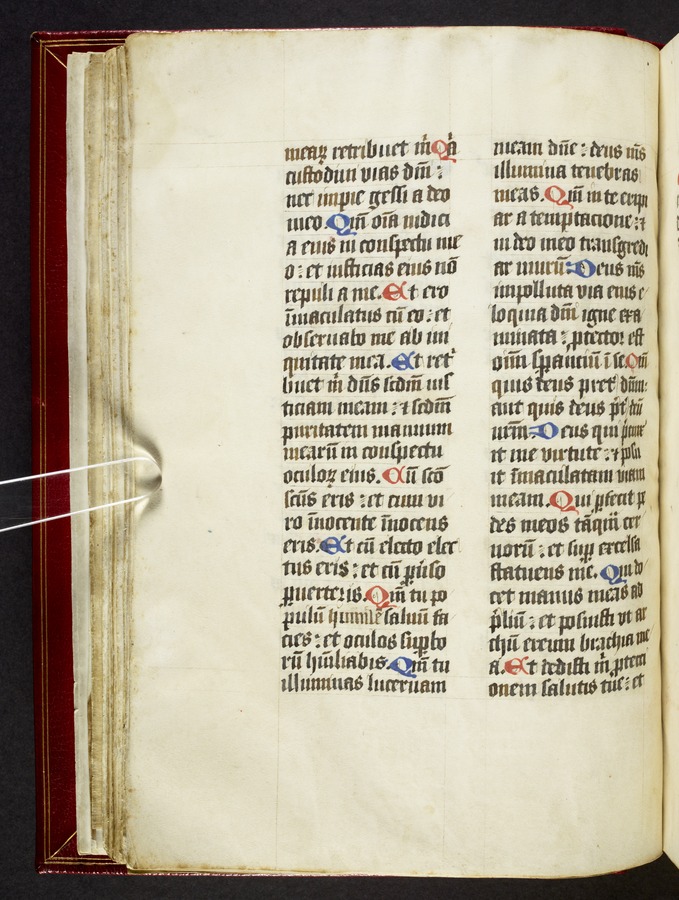 meaꝝ retribuet m̄ Qa
custodiui vias dn̄i :
nec impie gessi a deo
meo. Qm̄ oīa iudici
a eius in conspectu me
o : et iusticias eius nō
repuli a me. Et ero
īmaculatus cū eo : et
obseruabo me ab ini
quitate mea. Et ret͛
buet m̄ dn̄s scdm̄ ius
ticiam meam : ⁊ scdm̄
puritatem manuum
mearū in conspectu
oculoꝝ eius. Cū scō
scūs eris : et cum vi
ro īnocente īnocens
eris. Et cū electo elec
tus eris : et cū ꝑuso
ꝑuerteris. Qm̄ tu po
pulū humilē saluū fa
cies : et oculos suꝑbo
rū hūiliabis. Qm̄ tu
illuminas lucernam
meam dn̄e : deus m̄s
illumina tenebras
meas. Qm̄ in te eripi
ar a temptacione : ⁊
in deo meo transgredi
ar murū : Deus m̄s
impolluta via eius e
loquia dn̄i igne exa
minata : ꝓtector est
oīm sꝑanciū ī se. Qm̄
quis deus pret͛ dn̄m :
aut quis deus p̄t͛ dm̄
nr̄m. Deus qui p̄cinx
it me virtute : ⁊ posu
it īmaculatam viam
meam. Qui ꝑfecit pe
des meos tāqm̄ cer
uorū : et suꝑ excelsa
statuens me. Qui do
cet manus meas ad
p̄liū : et posuisti vt ar
chū ereum brachia me
a. Et dedisti m̄ ꝓtecti
onem salutis tue : et